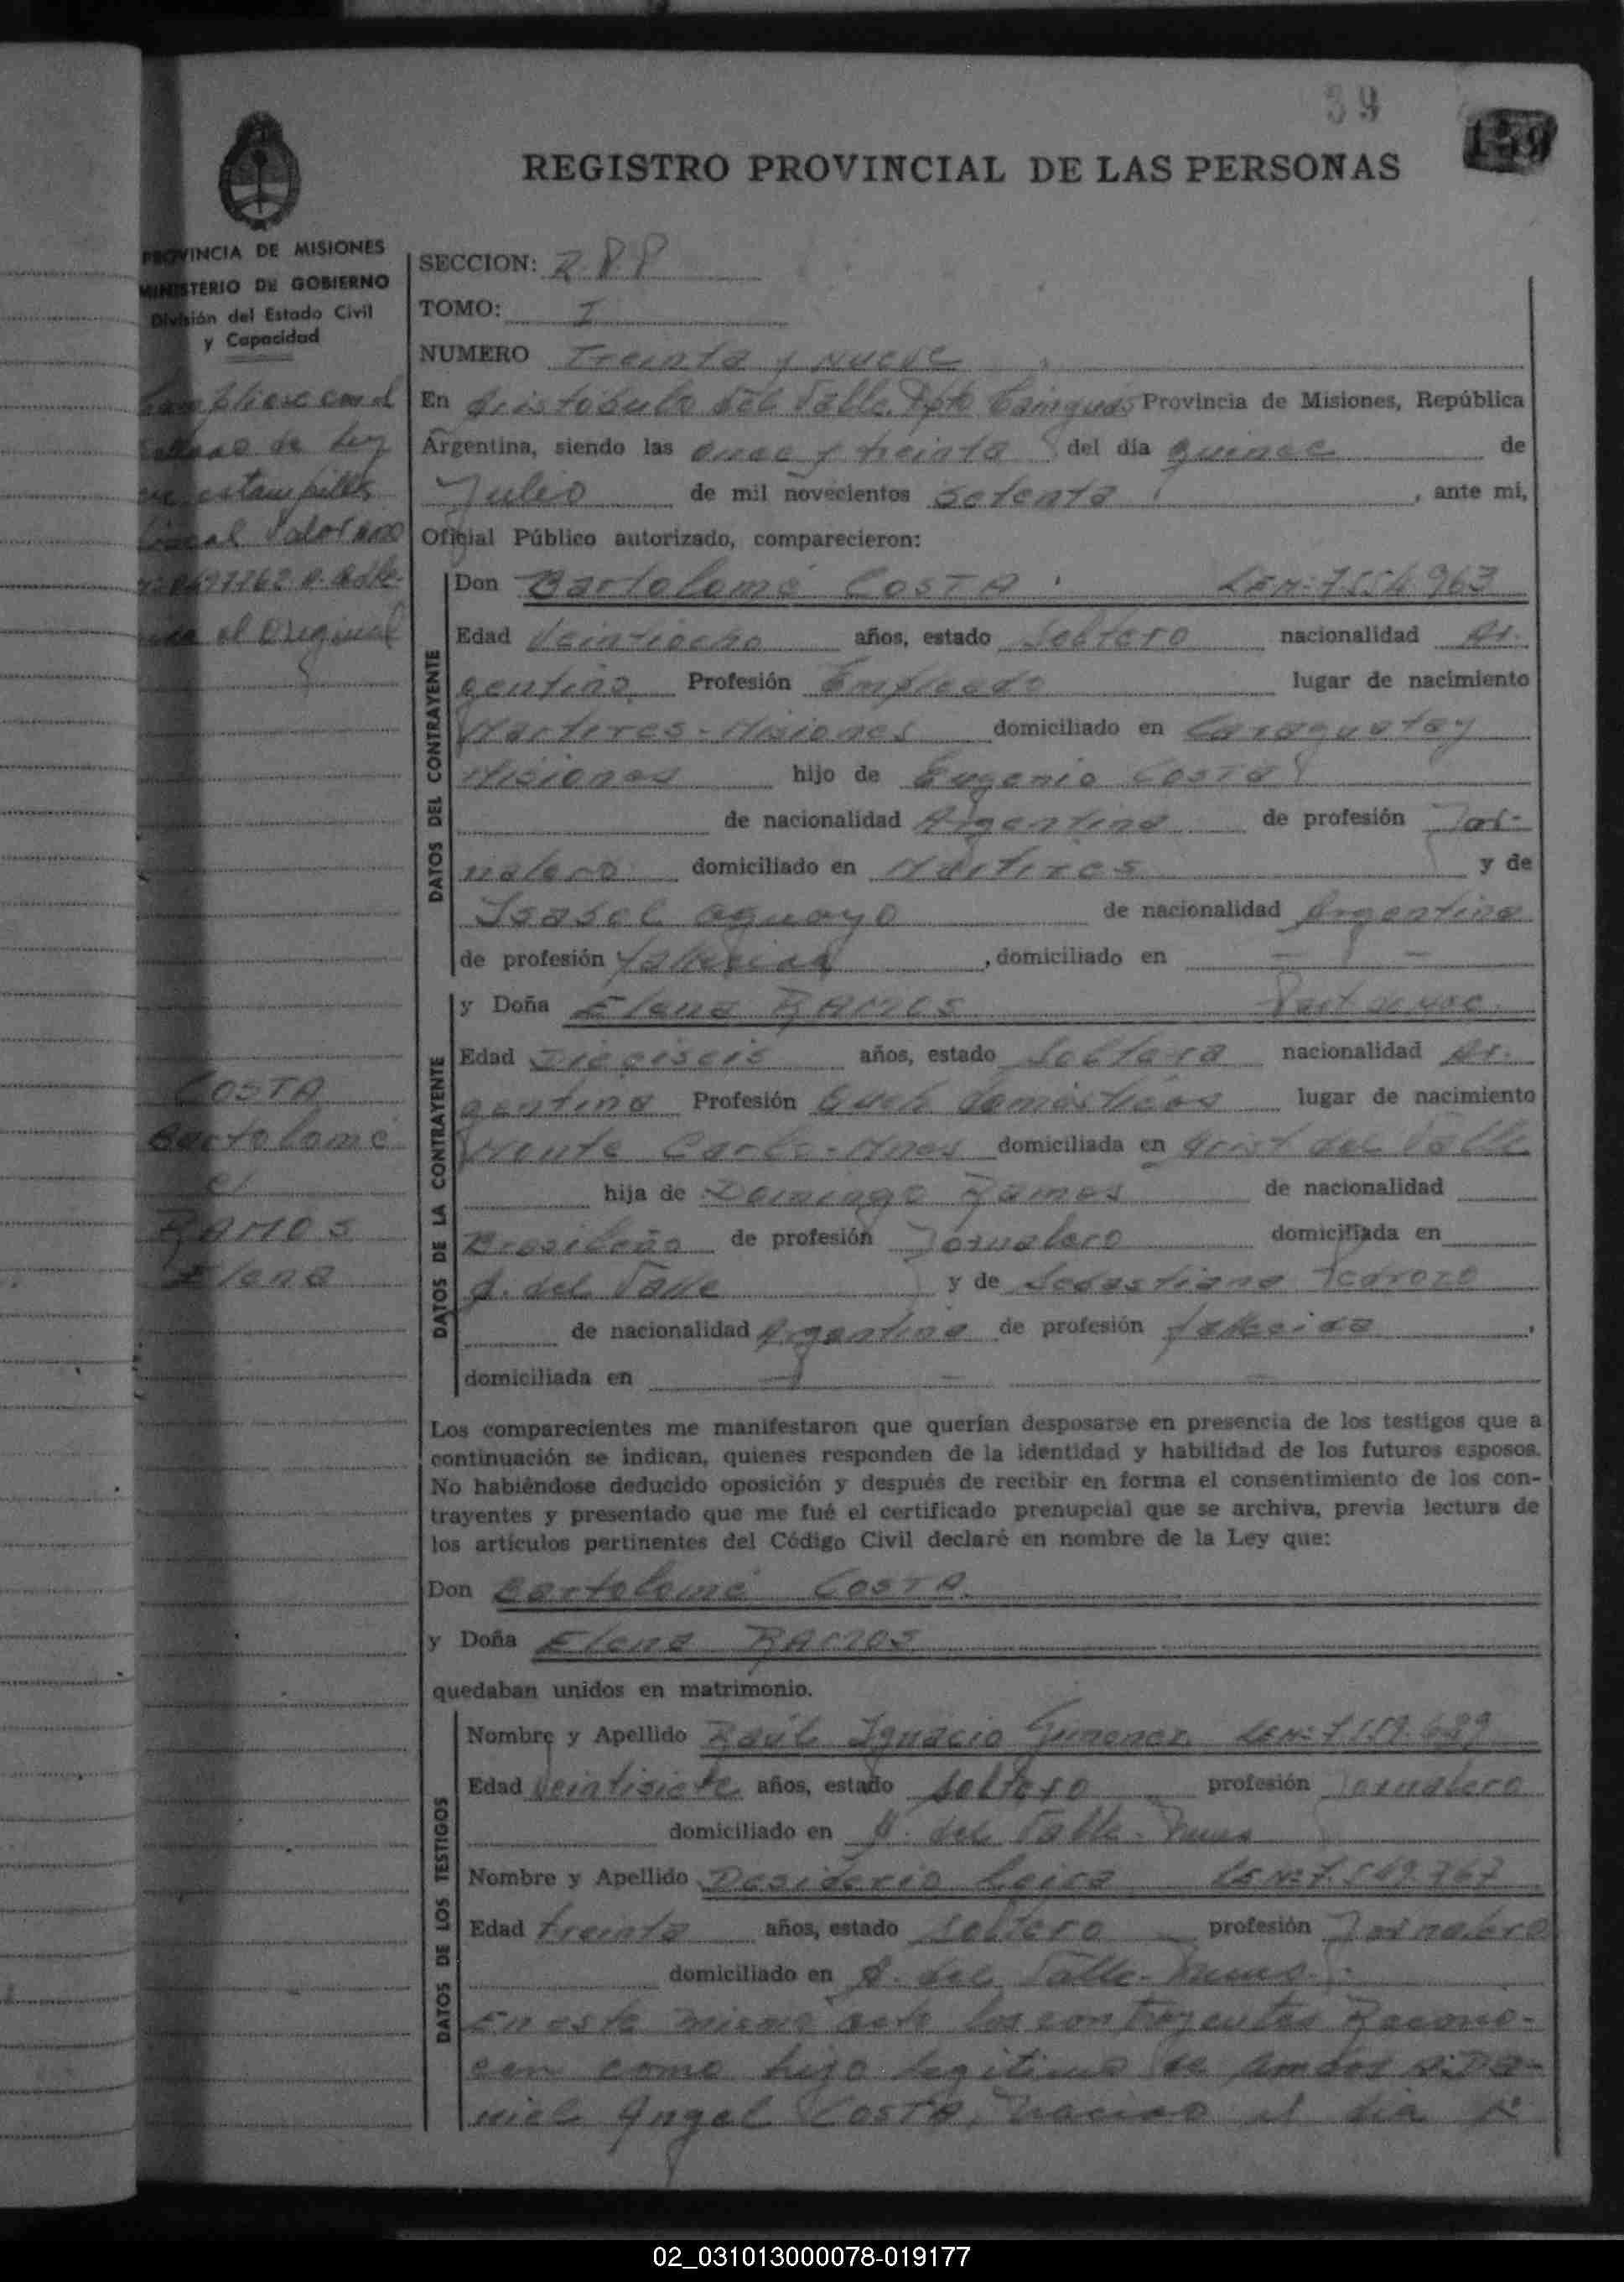 39
REGISTRO PROVINCIAL DE LAS PERSONAS
PROVINCIA DE MISIONES
MINISTERIO DE GOBIERNO
División del Estado Civil
y Capacidad
el original
COSTA
Bartolomé
c/
RAMOS
Elena
SECCION: R.P.P
TOMO: I
NUMERO Treinta y nueve
En Aristobulo del Valle Dpto Cainguás Provincia de Misiones, República
Argentina, siendo las once y treinta del día quince de
Julio de mil novecientos setenta, ante mi,
Oficial Público autorizado, comparecieron:
DATOS DEL CONTRAYENTE
Don Bartolomé COSTA LEN: 7.554.963
Edad Veintiocho años, estado Soltero nacionalidad Ar-
gentina Profesión Empleado lugar de nacimiento
Martires - Misiones domiciliado en Caraguatay
Misiones hijo de Eugenio Costa
de nacionalidad Argentina de profesión Jor-
nalero domiciliado en Martires y de
Isabel Aguayo de nacionalidad Argentina
de profesión fallecida, domiciliado en — —
DATOS DE LA CONTRAYENTE
y Doña Elena RAMOS Part de nac.
Edad Dieciseis años, estado Soltera nacionalidad Ar-
gentina Profesión Queh. domésticos lugar de nacimiento
Monte Carlo - Mnes domiciliada en Arist del Valle
hija de Domingo Ramos de nacionalidad
Brasileño de profesión Jornalero domiciliada en
A. del Valle y de Sebastiana Pedrozo
de nacionalidad Argentina de profesión fallecida,
domiciliada en — — —
Los comparecientes me manifestaron que querían desposarse en presencia de los testigos que a
continuación se indican, quienes responden de la identidad y habilidad de los futuros esposos.
No habiéndose deducido oposición y después de recibir en forma el consentimiento de los con-
trayentes y presentado que me fué el certificado prenupcial que se archiva, previa lectura de
los artículos pertinentes del Código Civil declaré en nombre de la Ley que:
Don Bartolomé COSTA
y Doña Elena RAMOS
quedaban unidos en matrimonio.
DATOS DE LOS TESTIGOS
Nombre y Apellido Raúl Ignacio Gimenez LEN:
Edad Veintisiete años, estado Soltero profesión Jornalero
domiciliado en A. del Valle - Mnes
Nombre y Apellido Desiderio Leiva LEN: 7.549.767
Edad treinta años, estado Soltero profesión Jornalero
domiciliado en A. del Valle - Mnes
En este mismo acto los contrayentes Recono-
cen como hijo legitimo de ambos a: Da-
niel Angel COSTA, nacido el dia
02_031013000078-019177